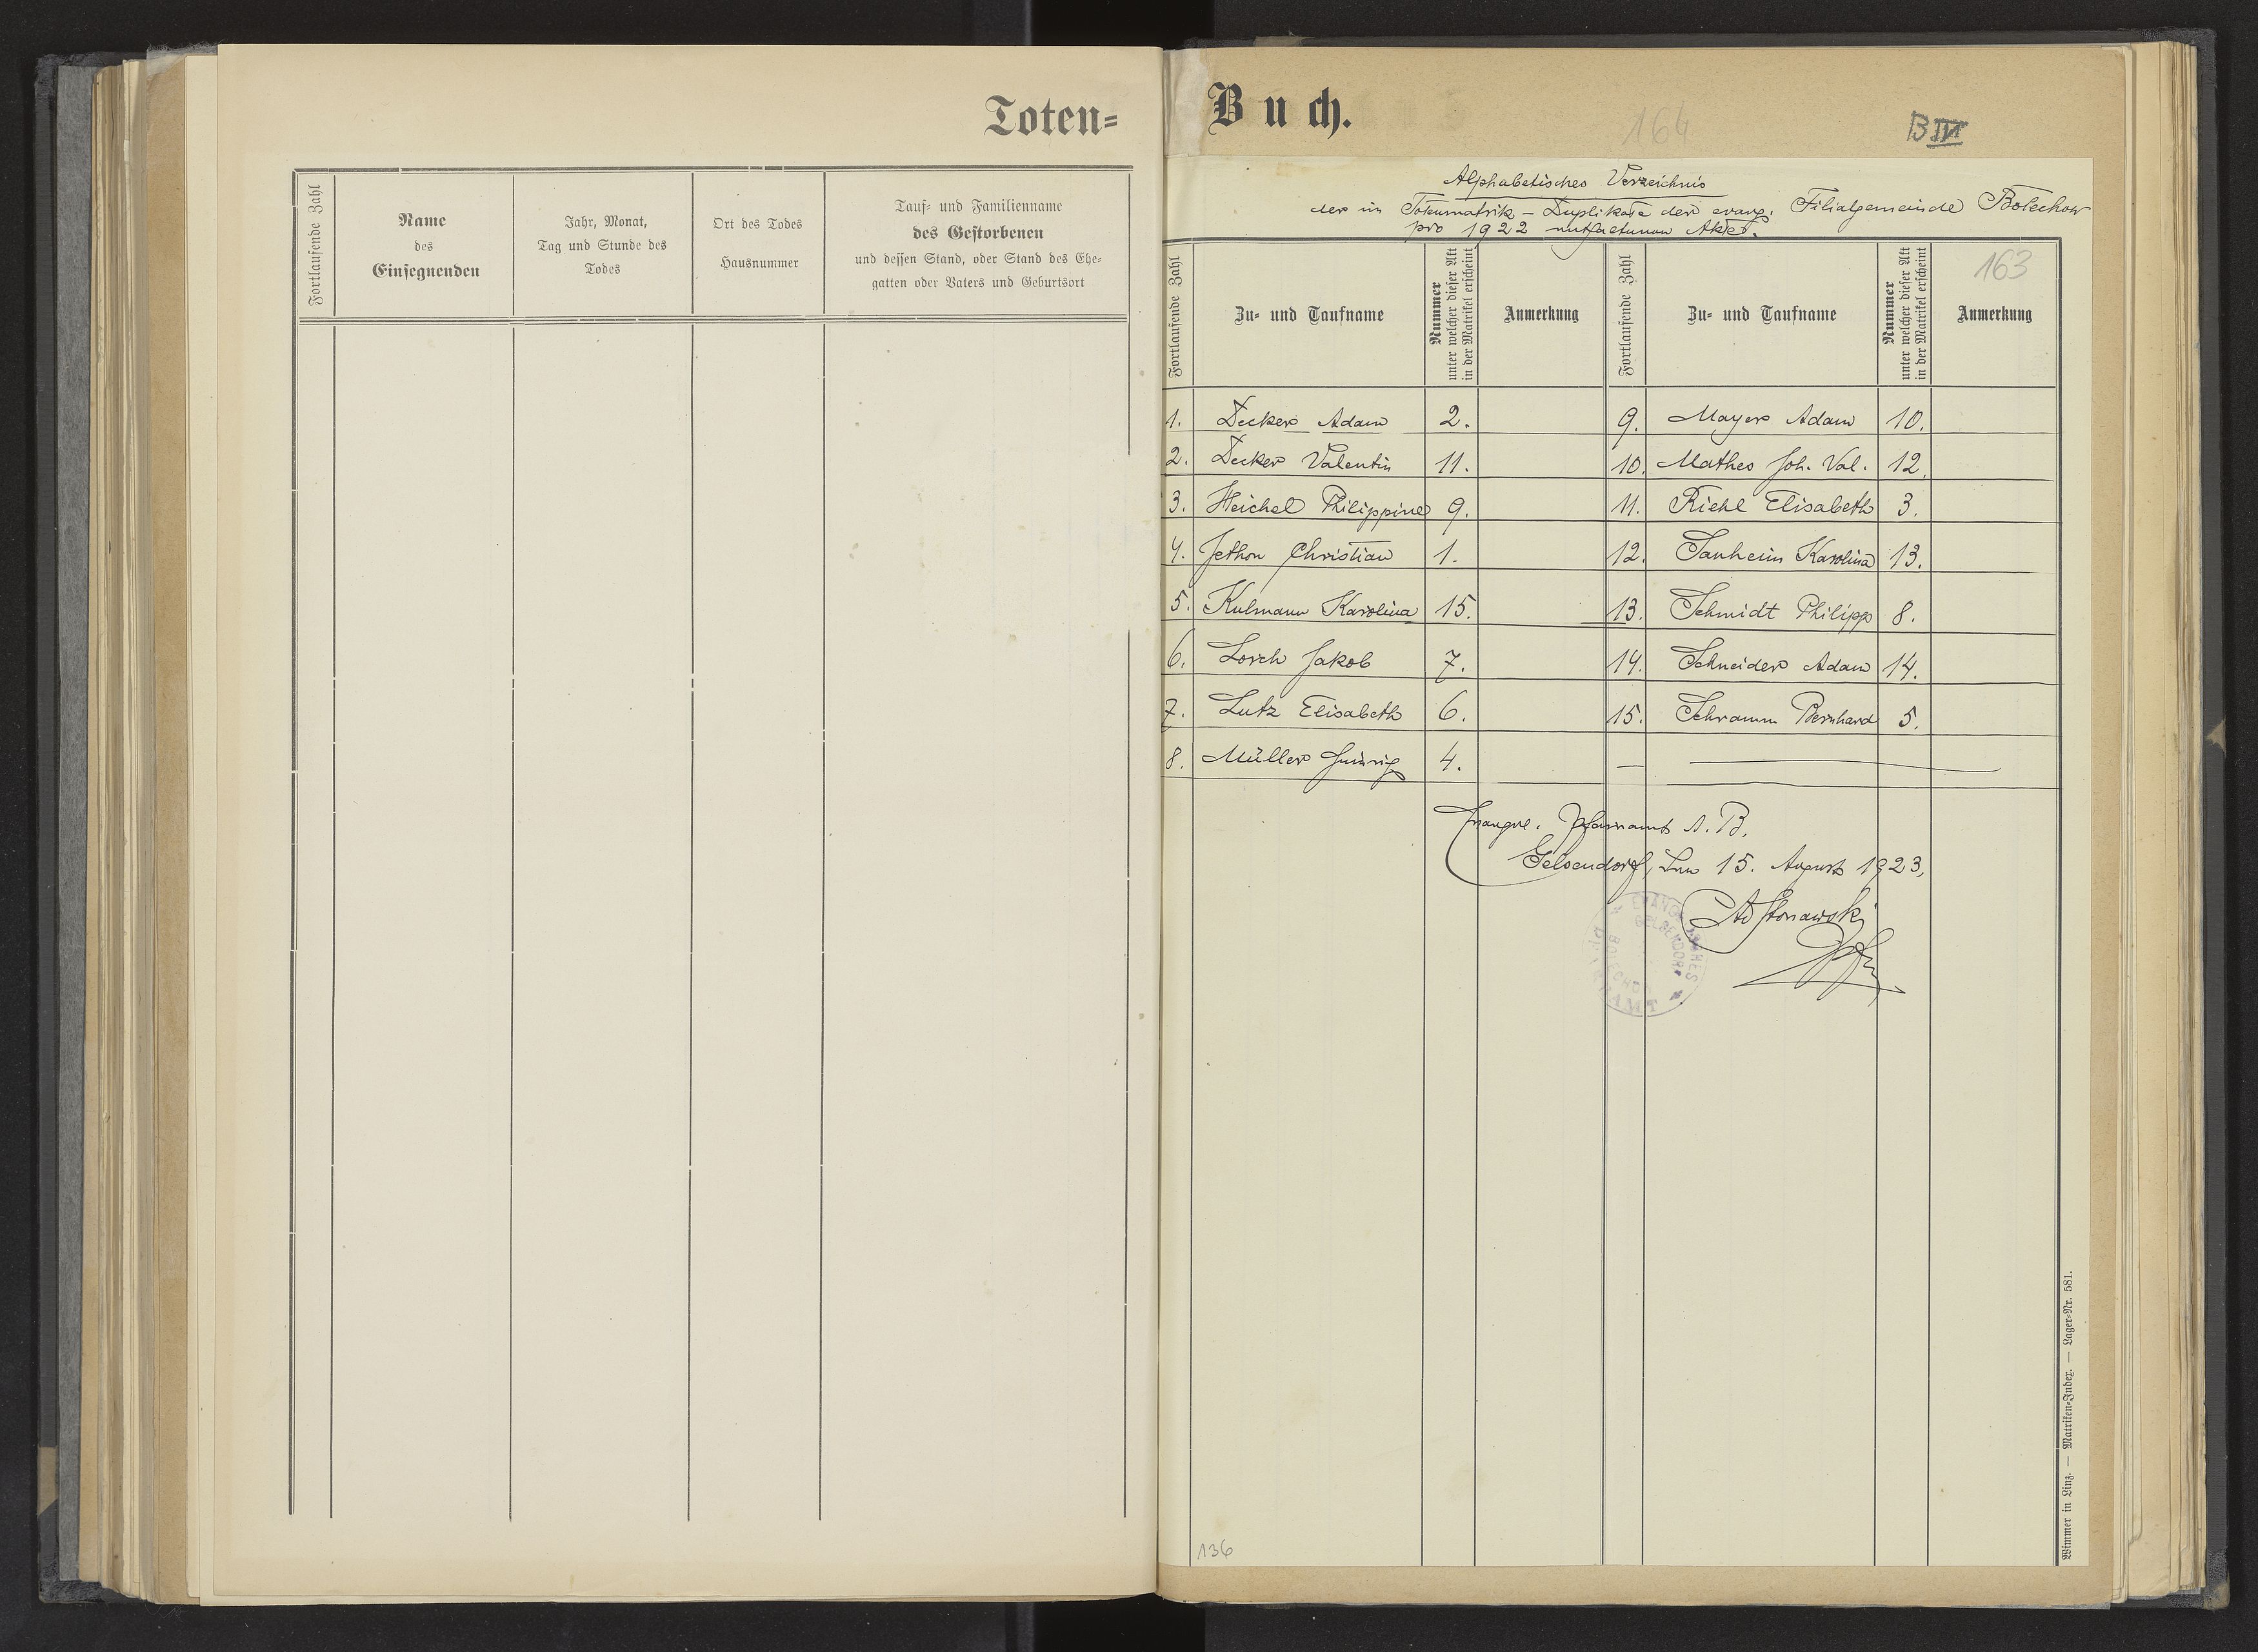 Toten=
Fortlaufende Zahl
Name
des
Einsegnenden
Jahr, Monat,
Tag und Stunde des
Todes
Ort des Todes
Hausnummer
Tauf= und Familienname
des Gestorbenen
und dessen Stand, oder Stand des Ehe=
gatten oder Vaters und Geburtsort
Buch.
164
B IV
Alphabetisches Verzeichnis
der in Totenmatrik – Duplikate der evang. Filialgemeinde Bolechow
pro 1922 enthaltenen Akte.
163
Fortlaufende Zahl
Zu= und Taufname
Nummer
unter welcher dieser Akt
in der Matrikel erscheint
Anmerkung
Fortlaufende Zahl
Zu= und Taufname
Nummer
unter welcher dieser Akt
in der Matrikel erscheint
Anmerkung
1. Decker Adam 2.
2. Decker Valentin 11.
3. Heichel Philippine 9.
4. Jethon Christian 1.
5. Kulmann Karolina 15.
6. Lorch Jakob 7.
7. Lutz Elisabeth 6.
8. Müller Heinrich 4.
9. Mayer Adam 10.
10. Mathes Joh. Val. 12.
11. Riehl Elisabeth 3.
12. Sanheim Karolina 13.
13. Schmidt Philipp 8.
14. Schneider Adam 14.
15. Schramm Bernhard 5.
Evangel. Pfarramt A. B.
Gelsendorf, den 15. August 1923,
136
Wimmer in Linz. — Matriken=Index. — Lager=Nr. 581.